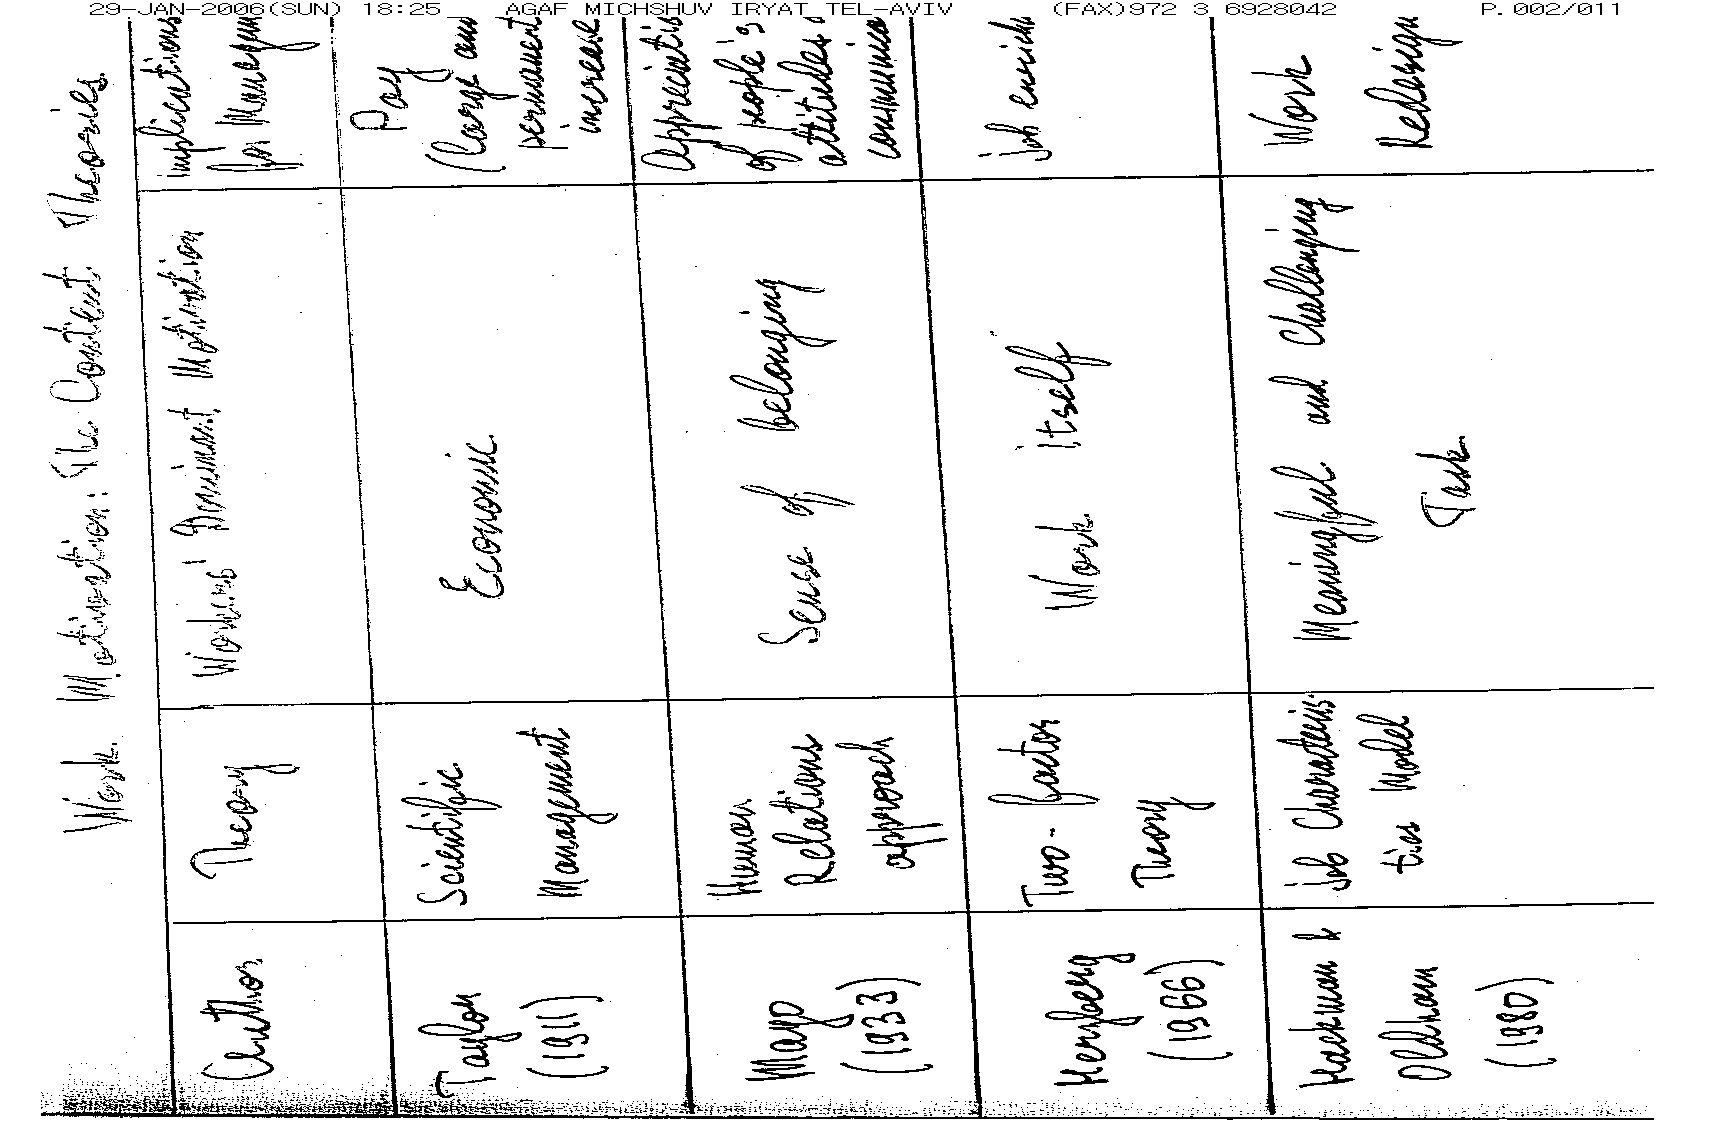 29-JAN-2006(SUN) 18:25 AGAF MICHSHUV IRYAT TEL-AVIV (FAX)972 3 6928042 P.002/011
Work Motivation: The Content Theories
Author
Theory
Workers' Dominant Motivation
implications
for Managem
Taylor
(1911)
Scientific
Management
Economic
Pay
(large and
permanent
increase
Mayo
(1933)
Human
Relations
approach
Sense of belonging
appreciatio
of people's
attitudes
communica
Herzberg
(1966)
Two-factor
Theory
Work itself
job enrich
Hackman &
Oldham
(1980)
job Characteris
tics Model
Meaningful and Challenging
Task
Work
Redesign